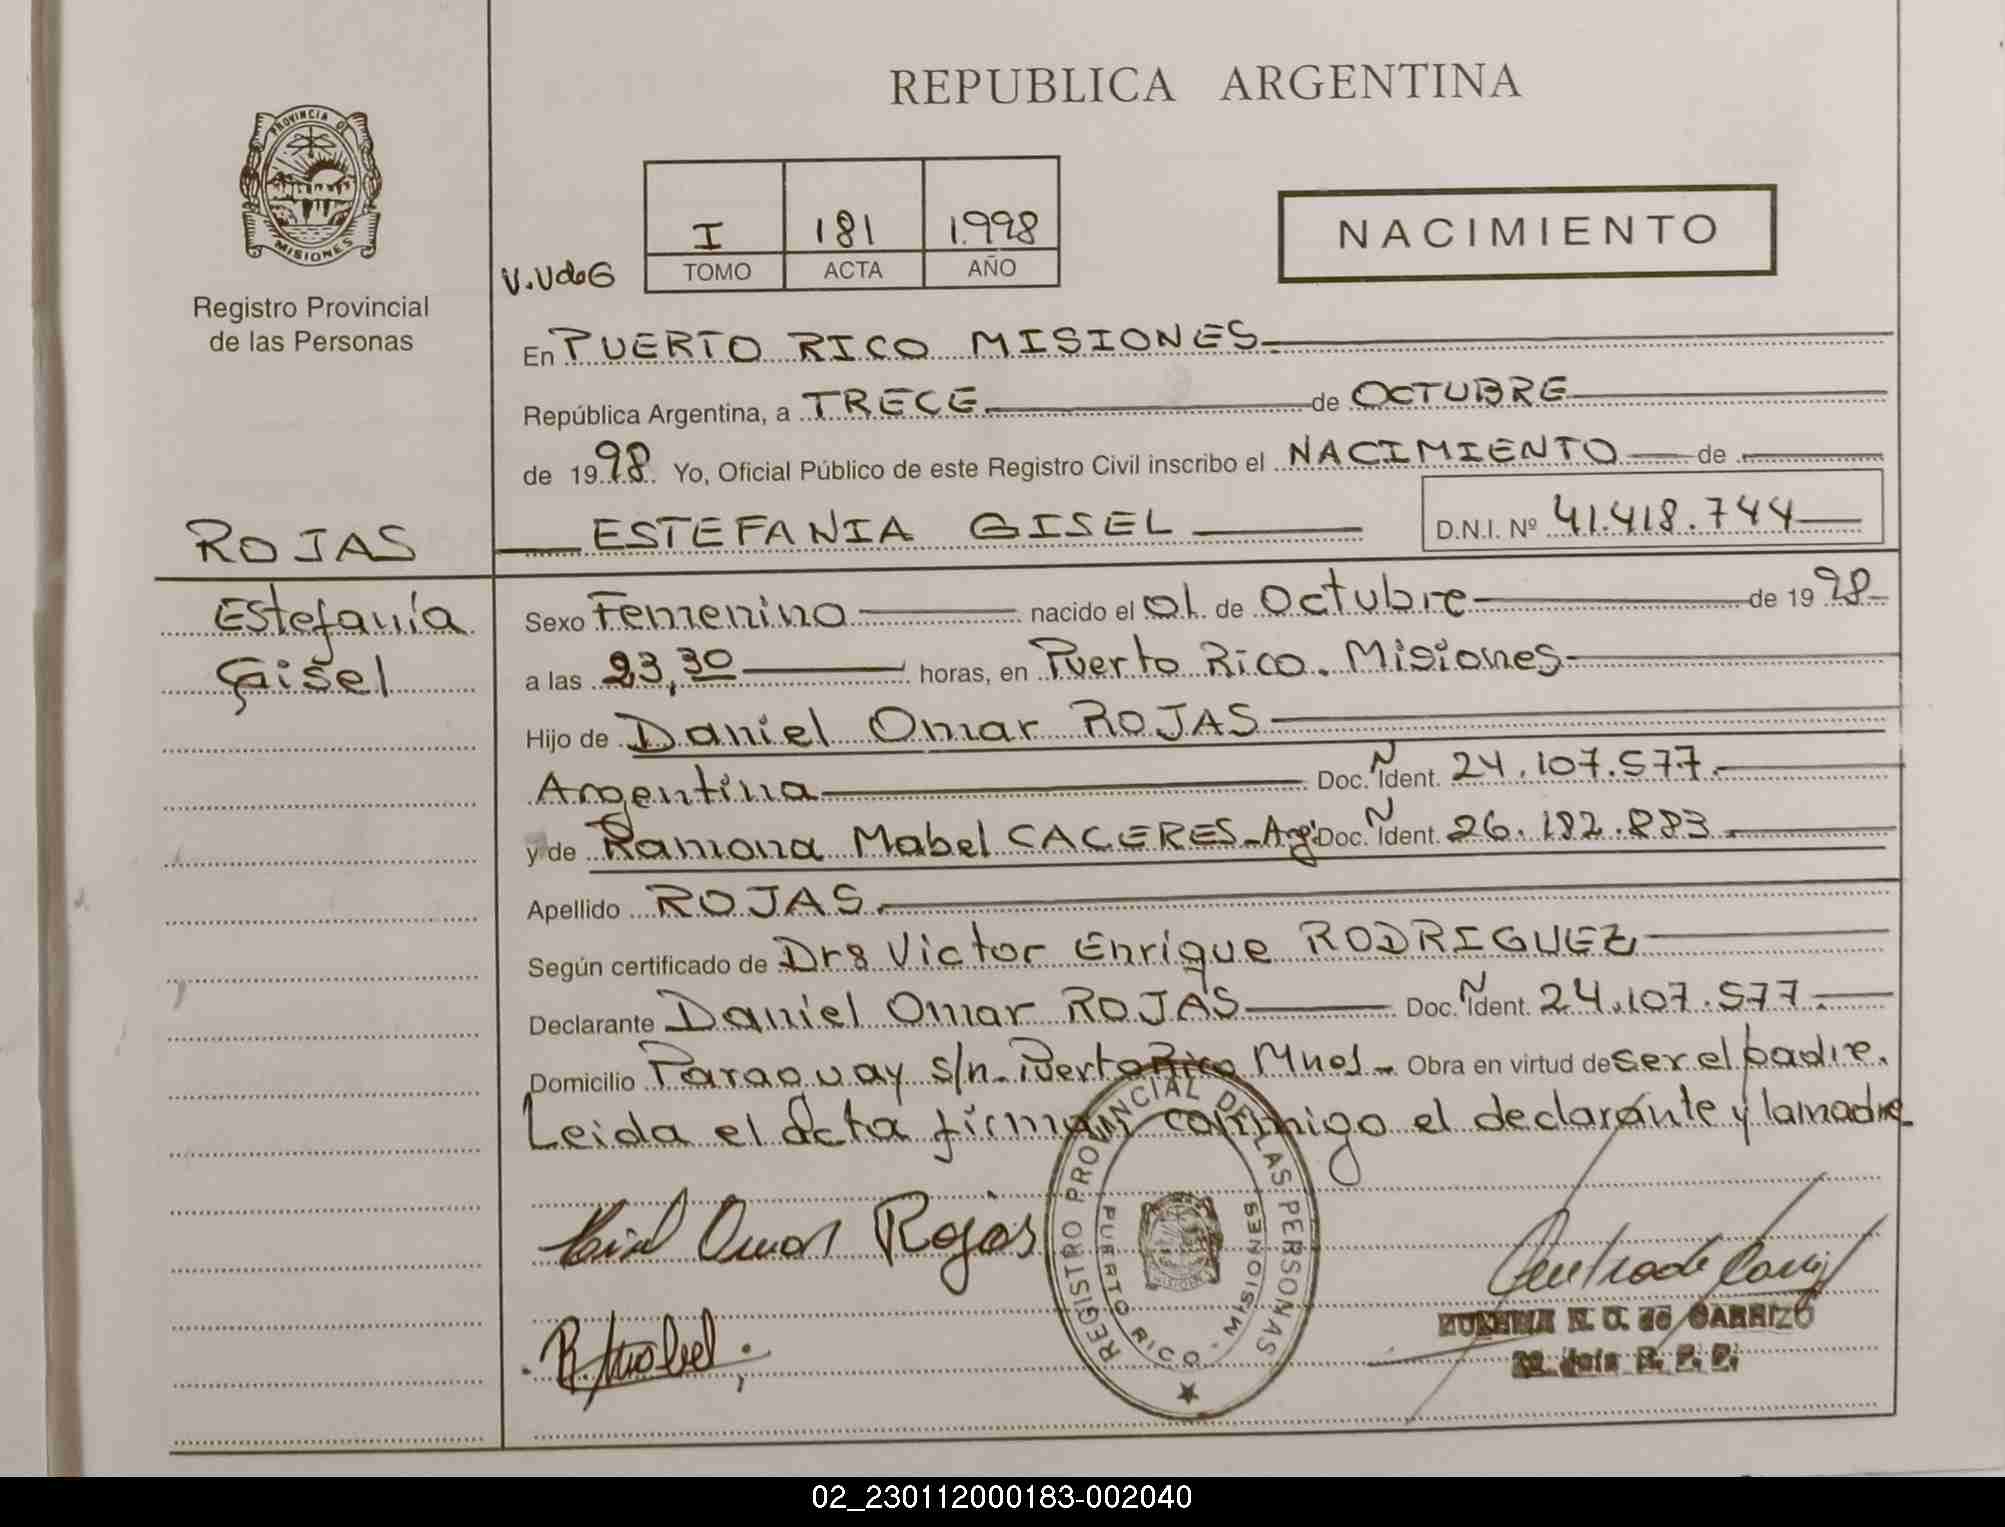 REPUBLICA ARGENTINA
PROVINCIA DE
MISIONES
Registro Provincial
de las Personas
I 181 1998
TOMO ACTA AÑO
V.VdeG
NACIMIENTO
En PUERTO RICO MISIONES
República Argentina, a TRECE de OCTUBRE
de 1998 Yo, Oficial Público de este Registro Civil inscribo el NACIMIENTO de
ROJAS
ESTEFANIA GISEL D.N.I. Nº 41.418.744
Estefanía
Gisel
Sexo Femenino nacido el 01 de Octubre de 1998
a las 23,30 horas, en Puerto Rico. Misiones
Hijo de Daniel Omar ROJAS
Argentina Doc. Ñ Ident. 24.107.577.
y de Ramona Mabel CACERES-Arg: Doc. Ñ Ident. 26.182.883
Apellido ROJAS
Según certificado de Drs Victor Enrique RODRIGUEZ
Declarante Daniel Omar ROJAS Doc. Ñ Ident. 24.107.577.
Domicilio Paraguay s/n. Puerto Rico Mnes Obra en virtud de ser el padre.
Leida el acta firman conmigo el declarante y la madre
Omar Rojas
R. Mabel
REGISTRO PROVINCIAL DE LAS PERSONAS
PUERTO RICO - MISIONES
de CARRIZO
R. P. P.
02_230112000183-002040